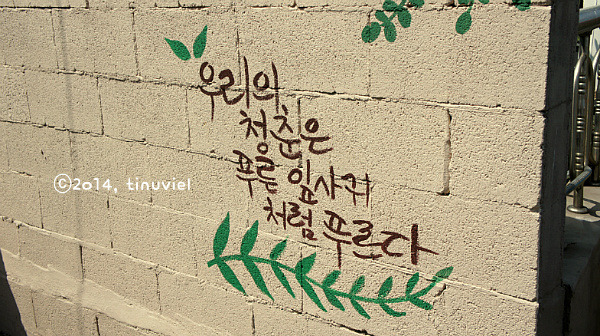 우리의
청춘은
푸른 잎사귀
처럼 푸르다
©2014, tinuviel